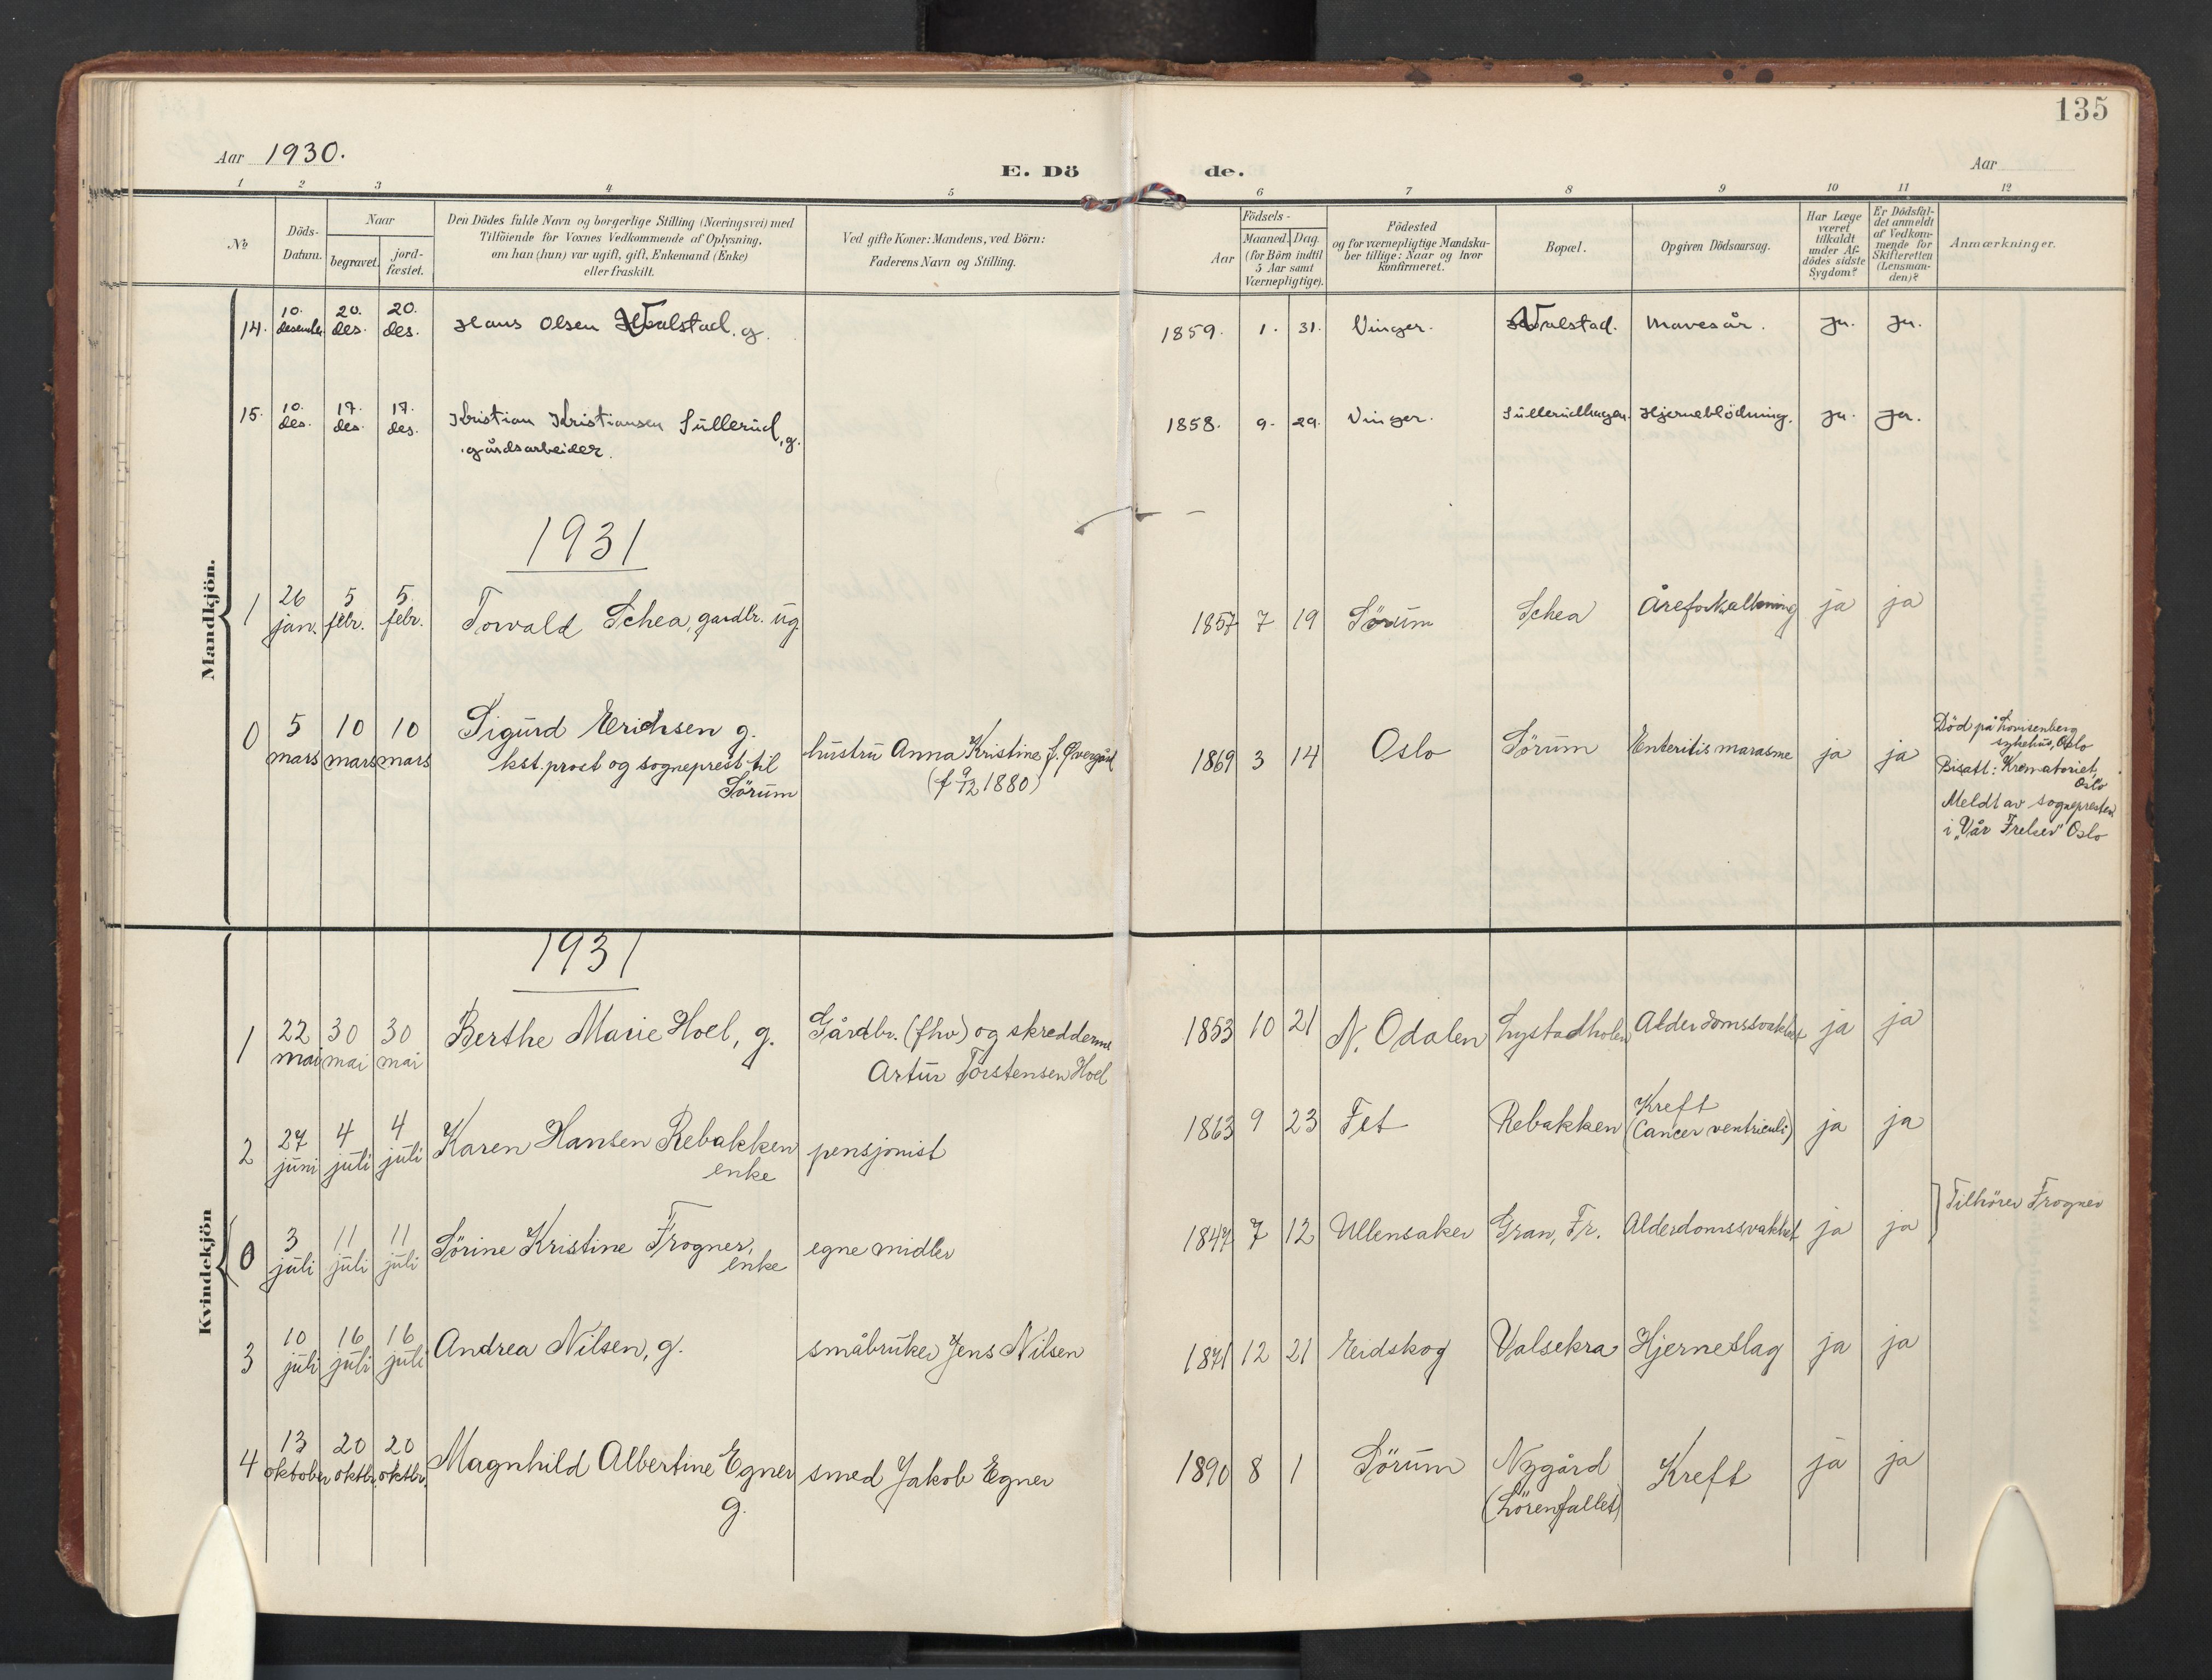 135
Aar 1930.
E. Dö de.
Aar
1 2 3 4 5 6 7 8 9 10 11 12
№
Döds-
Datum.
Naar
begravet.
jord-
fæstet.
Den Dödes fulde Navn og borgerlige Stilling (Næringsvei) med
Tilföiende for Voxnes Vedkommende af Oplysning,
om han (hun) var ugift, gift, Enkemand (Enke)
eller fraskilt.
Ved gifte Koner: Mandens, ved Börn:
Faderens Navn og Stilling.
Födsels-
Aar
Maaned. Dag.
(for Börn indtil
5 Aar samt
Værnepligtige).
Födested
og for værnepligtige Mandska-
ber tillige: Naar og hvor
konfirmeret.
Bopæl.
Opgiven Dödsaarsag.
Har Læge
været
tilkaldt
under Af-
dödes sidste
Sygdom?
Er Dödsfal-
det anmeldt
af Vedkom-
mende for
Skifteretten
(Lensman-
den)?
Anmærkninger.
Mandkjön.
14. 10. desember 20. des. 20. des. Hans Olsen Valstad. g. 1859. 1. 31. Vinger. Valstad. Mavesår. ja. ja.
15. 10. des. 17. des. 17. des. Kristian Kristiansen Süllerüd, g. 1858. 9. 29. Vinger. Süllerüdhagen. Hjerneblödning. ja. ja.
gårdsarbeider.
1931
1 26 jan. 5 febr. 5 febr. Torvald Schea, gardbr. üg. 1857 7 19 Sörüm Schea Åreforkalkning ja ja
0 5 mars 10 mars 10 mars Sigürd Erichsen g.
kst. prost og sogneprest til
Sörüm
hüstrü Anna Kristine f. Øvergård
(f 9/12 1880)
1869 3 14 Oslo Sörüm Enteritis marasme ja ja
Död på Lovisenberg
sykehüs, Oslo
Bisatt: Krematoriet,
Oslo
Meldt av sognepresten
i „Vår Frelser" Oslo
Kvindekjön
1931
1 22 mai 30 mai 30 mai Berthe Marie Hoel, g. Gårdbr. (fhv) og skredderm
Artür Torstensen Hoel
1853 10 21 N. Odalen Lystadholen Alderdomssvakhet ja ja
2 27 jüni 4 jüli 4 jüli Karen Hansen Rebakken
enke
pensjonist 1863 9 23 Fet Rebakken Kreft
(Cancer ventriculi)
ja ja
0 3 jüli 11 jüli 11 jüli Sörine Kristine Frogner,
enke
egne midler 1847 7 12 Ullensaker Gran, Fr. Alderdomssvakhet ja ja Tilhörer Frogner
3 10 jüli 16 jüli 16 jüli Andrea Nilsen, g. småbrüker Jens Nilsen 1871 12 21 Eidskog Valsekra Hjerneslag ja ja
4 13 oktober 20 oktbr. 20 oktbr. Magnhild Albertine Egner
g.
smed Jakob Egner 1890 8 1 Sörüm Nygård
(Lörenfallet)
Kreft ja ja